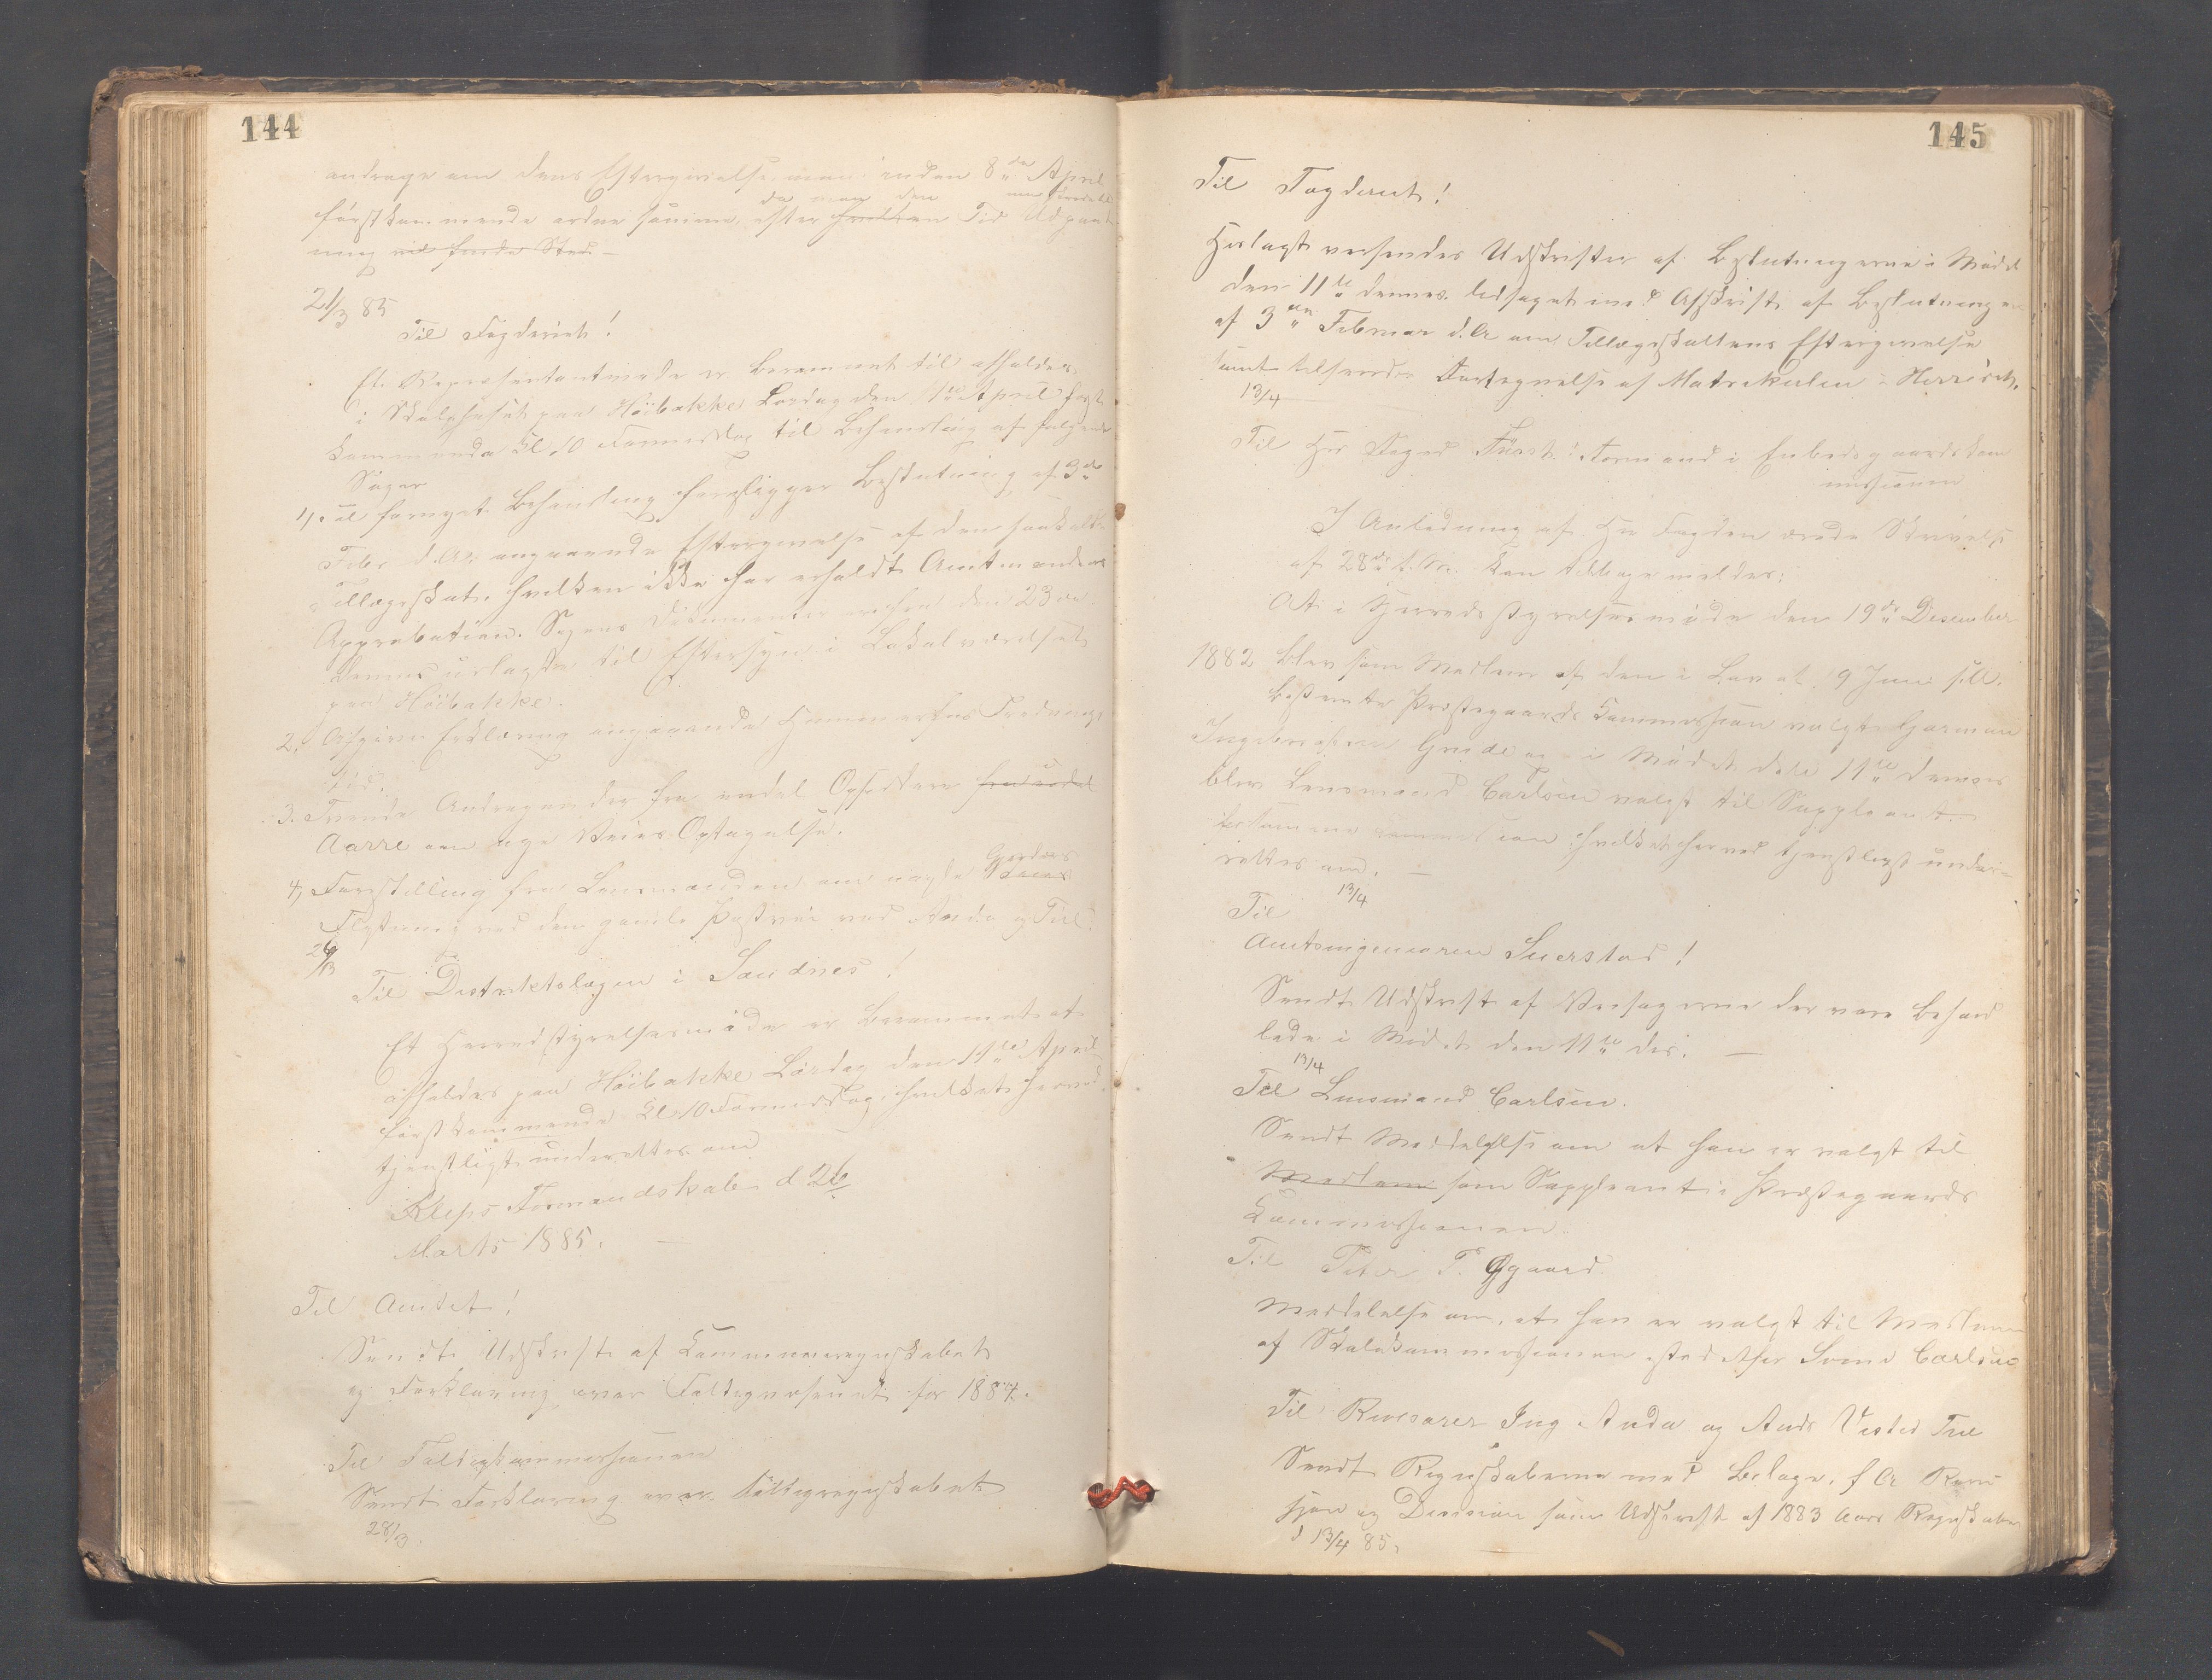 144
andrage om dens Eftergivelse, man inden 8de April
førstkommende ordne samme, da man den efter Tid Udpant
ning ved første Sted –
21/3 85
Til Fogderiet!
Et Repræsentantmøde er berammet til afholdes
i Skolehuset paa Höibakke Lørdag den 11te April først
kommende Kl 10 Formiddag til Behandling af følgende
Sager
1, Til fornyet Behandling foreligger Beslutning af 3de
Febr d.A. angaaende Eftergivelse af den saakaldte
Tillægsskat, hvilken ikke har erholdt Amtmandens
Approbation. Sagens Dokumenter den 23de
dennes udlagte til Eftersyn i Lokalværelset
paa Höibakke.
2, Afgiven Erklæring angaaende Hummerens Frednings
tid.
3. Tvende Andragender fra endel Opsiddere
Aarre om nye Veies Optagelse.
4, Forestilling fra Lensmanden om nogle Gjerders
Flytning ved den gamle Postvei ved Anda og Tu
26/3
Til Distriktslægen i Sandnes!
Et Herredsstyrelsesmøde er berammet at
afholdes paa Höibakke Lørdag den 11te April
førstkommende Kl 10 Formiddag, hvilket herved
tjenstligst underrettes om
Kleps Formandskab d 26
Marts 1885. –
Til Amtet!
Sendt Udskrift af Kommuneregnskabet
og Forklaring over Fattigvæsenet for 1884.
Til Fattigkommissionen
Sendt Forklaring over Fattigregnskabet
28/3.
145
Til Fogderiet!
Hoslagt versendes Udskrifter af Beslutningerne i Mødet
den 11te dennes ledsaget med Afskrift af Beslutningen
af 3die Februar d.A. om Tillægsskattens Eftergivelse
samt Fortegnelse af Matrikulen i Herredet.
13/4
Til Hr Foged Formand i Embedsgaardskom
missionen
I Anledning af Hr Fogdens ærede Skrivelse
af 28de f.M. kan tilbagemeldes:
At i Herredsstyrelsesmøde den 19de Desember
1882 blev som Medlem af den i Lov af 9 Juni s.A.
bestemte Præstegaards Kommission valgt Gaarman
Ingebretsen Grude og i Mødet den 11te dennes
blev Lensmand Carlsen valgt til Suppleant
hvilket herved tjenstligst under-
rettes om. –
13/4
Til
Amtsingeniøren Suerstad!
Sendt Udskrift af Veisagerne der vare behand
lede i Mødet den 11te ds. –
13/4
Til Lensmand Carlsen.
Sendt Meddelelse om at han er valgt til
Medlem som Suppleant i Præstegaards
Kommissionen.
Til Peter P. Øgaard.
Meddelelse om, at han er valgt til Medlem
af Skolekommissionen istedetfor Svend Carlsen
Til Revisorer Ing Anda og Ands Vested Tu
Sendt Regnskaberne med Belage f A. Revi
sjon og Desision som Udskrift af 1883 Aars Regnskaber
d 13/4 85.